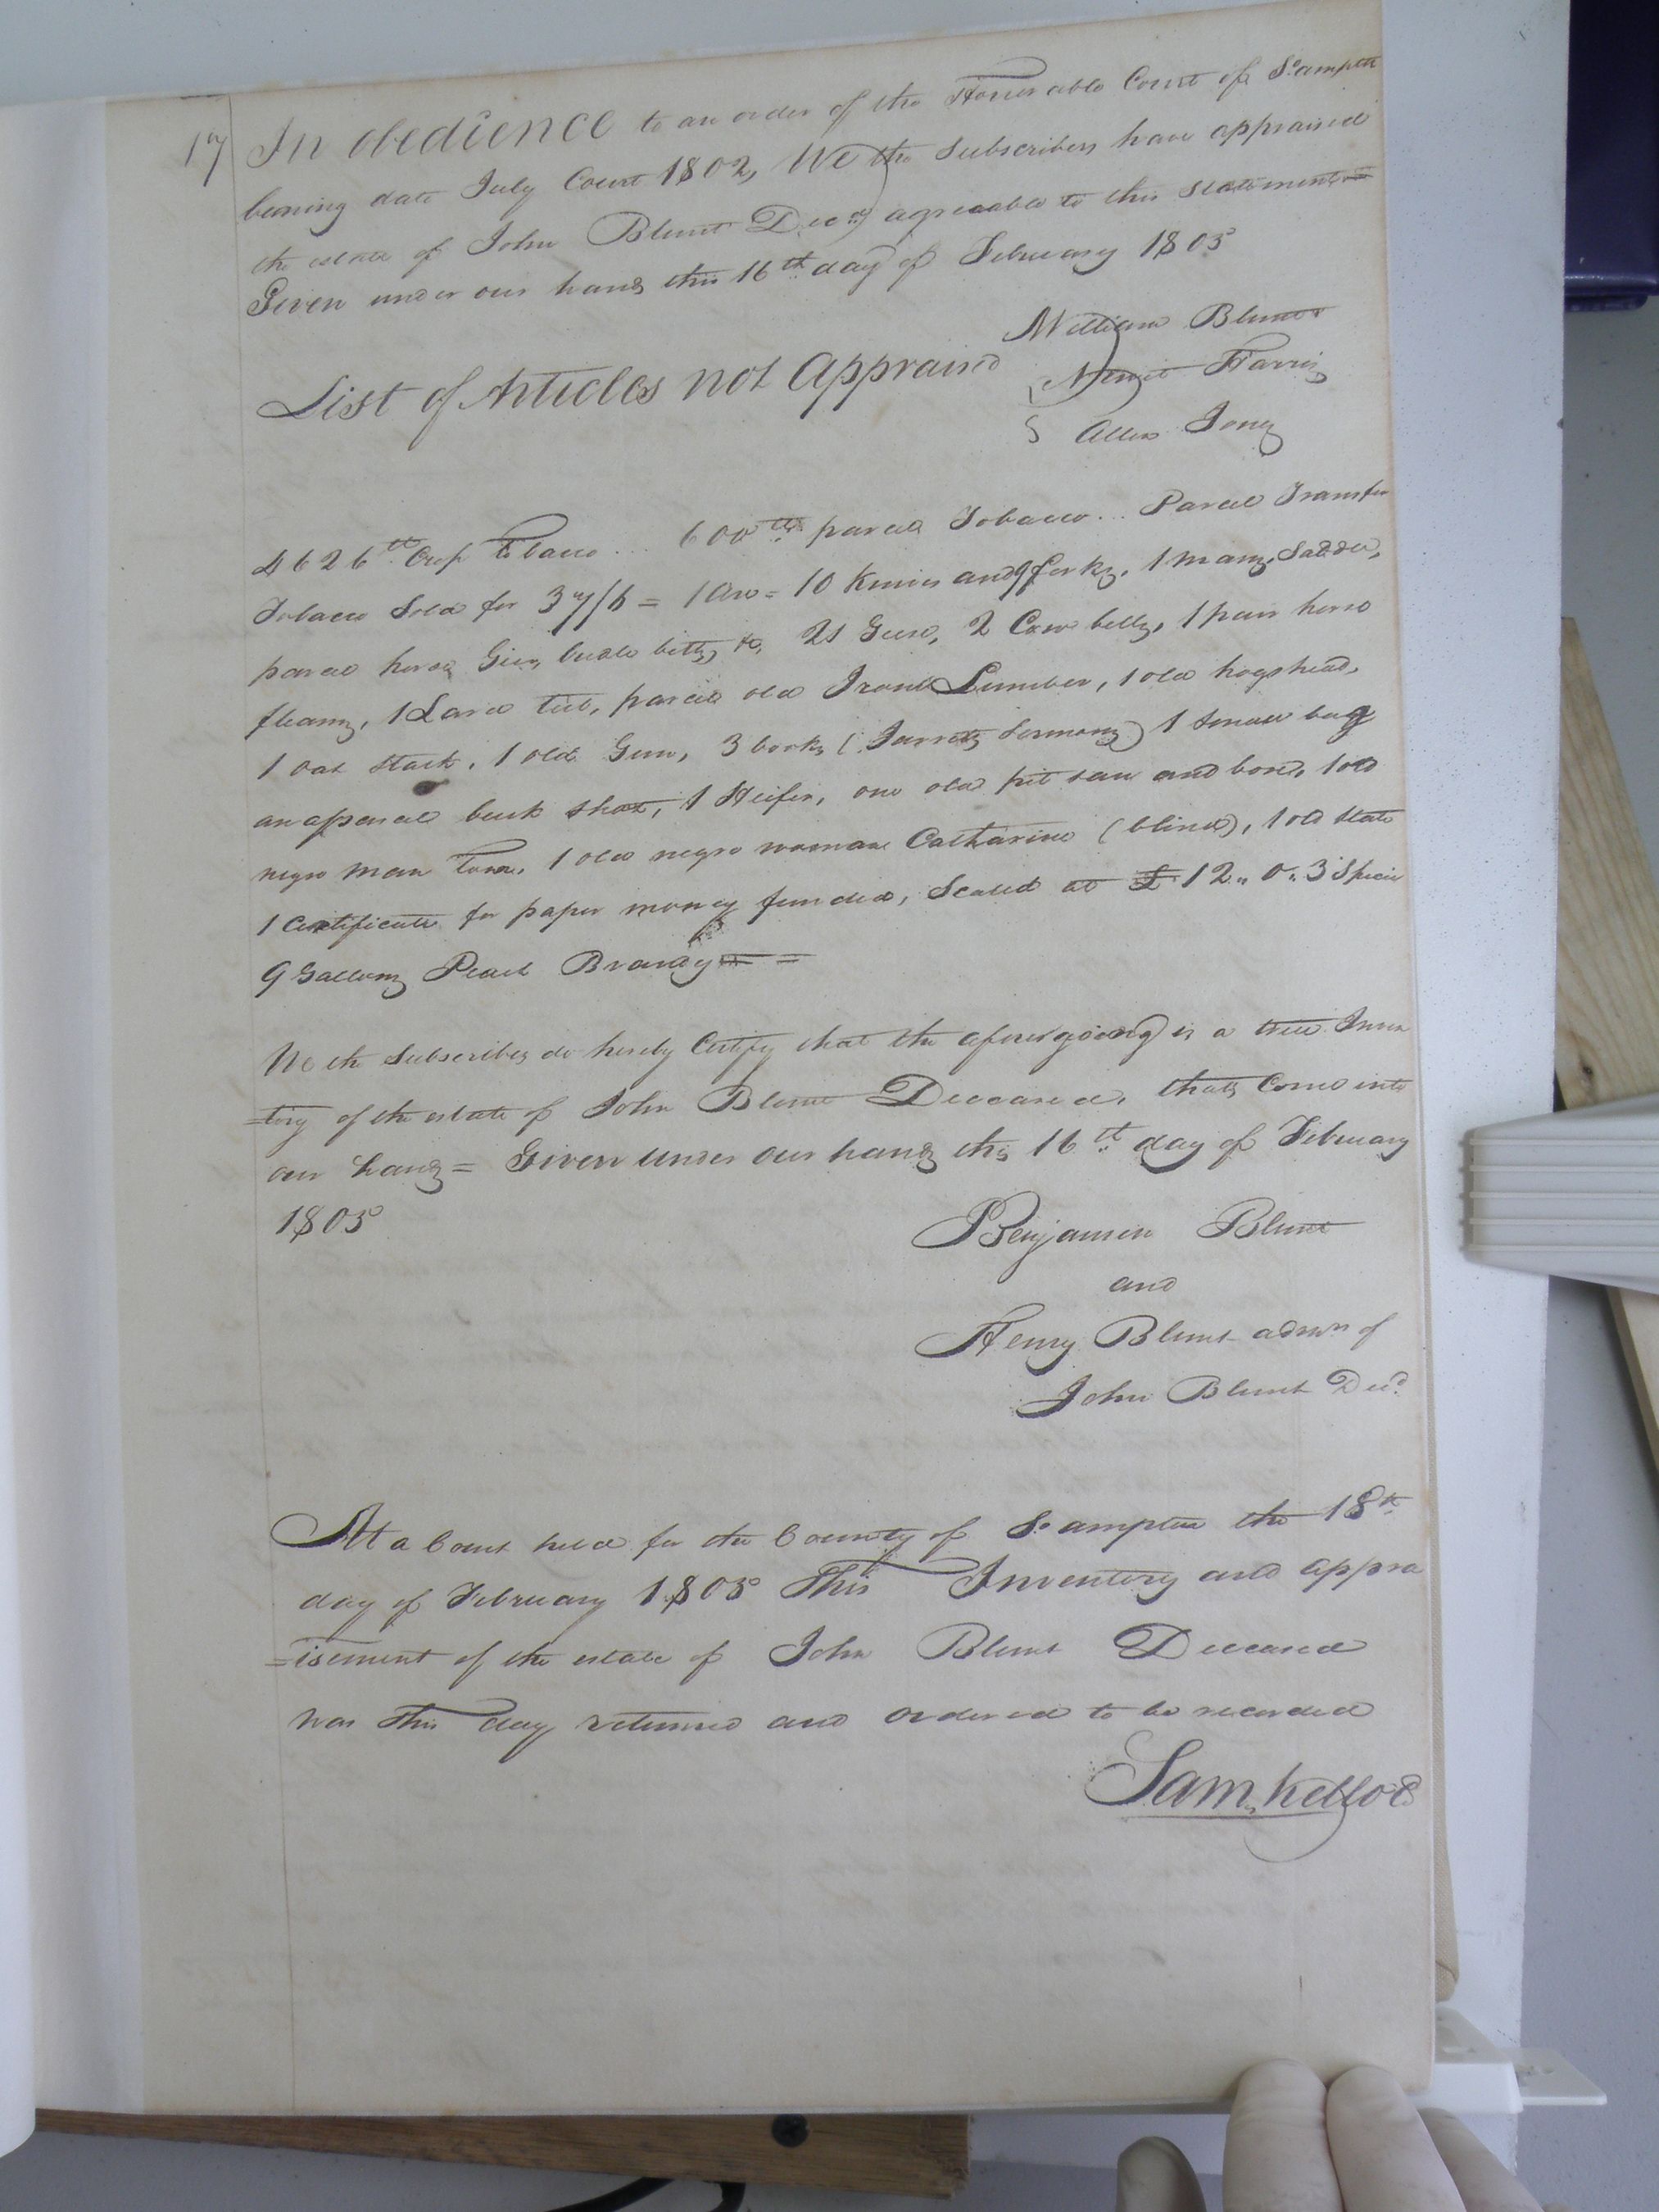 17 In obedience to an order of the Honorable Court of So.ampton
bearing date July Court 1802, We the Subscribers have appraised
the estate of John Blunt Decd agreeable to this statement =
Given under our hands this 16th day of February 1803
William Blunt
Harris
List of Articles not Appraised
Allen Jones
4626 lb Crop Tobacco ... 600 lb parcel Tobacco ... Parcel Transfer
Tobacco Sold for 37/6 = 1 Axe = 10 Knives and 9 forks, 1 mans Saddle,
parcel horse Gier, bridle bitts, &c, 21 Geese, 2 Cow bells, 1 pair horse
fleams, 1 Lard tub, parcel old Iron Lumber, 1 old hogshead,
1 oat stack, 1 old Gun, 3 books (Jarretts Sermons) 1 Small bag
an a parcel buck shot, 1 Heifer, one old pit saw and box, 1 old
negro man Tom, 1 old negro woman Catharine (blind), 1 old State
1 Certificate for paper money funded, Scaled at £12..0..3 Specie
9 Gallons Peach Brandy = =
We the Subscribers do hereby Certify that the aforegoing is a true Inven
=tory of the estate of John Blunt Deceased, thats Come into
our hands = Given under our hands this 16th day of February
1803
Benjamin Blunt
and
Henry Blunt admrs of
John Blunt Decd.
At a Court held for the County of So.ampton the 18th
day of February 1803 This Inventory and appra
=isement of the estate of John Blunt Deceased
was this day returned and ordered to be recorded
Sam. Kello C